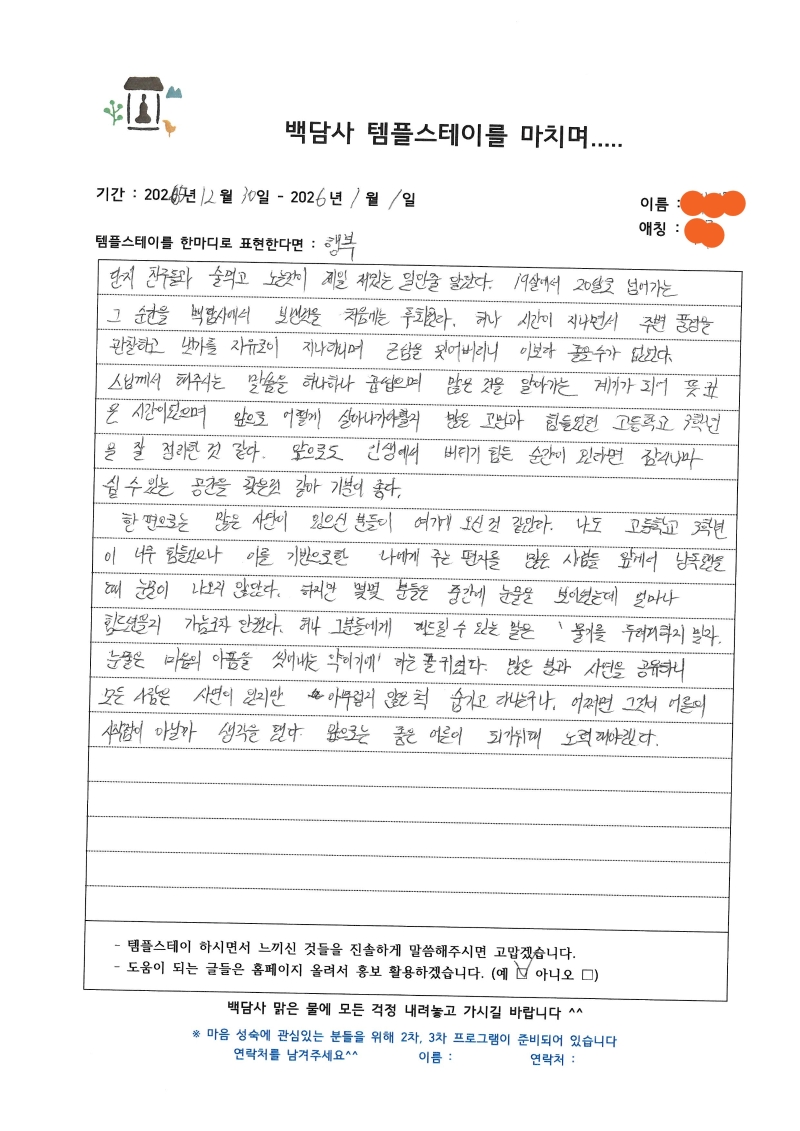 백담사 템플스테이를 마치며.....
기간 : 2025년 12월 30일 - 2026년 1월 1일
이름 :
애칭 :
템플스테이를 한마디로 표현한다면 : 행복
단지 친구들과 술먹고 노는것이 제일 재밌는 일인줄 알았다. 19살에서 20살로 넘어가는
그 순간을 백담사에서 보낸것을 처음에는 후회했다. 허나 시간이 지나면서 주변 풍경을
관찰하고 냇가를 자유로이 지나다니며 근심을 씻어버리니 이보다 좋을수가 없었다.
스님께서 해주시는 말씀을 하나하나 곱씹으며 많은 것을 알아가는 계기가 되어 뜻깊
은 시간이었으며 앞으로 어떻게 살아나가야할지 많은 고민과 힘들었던 고등학교 3학년
을 잘 정리한 것 같다. 앞으로도 인생에서 버티기 힘든 순간이 온다면 잠시나마
쉴 수 있는 공간을 찾은것 같아 기분이 좋다.
한 편으로는 많은 사연이 있으신 분들이 여기에 오신 것 같았다. 나도 고등학교 3학년
이 너무 힘들었으나 이를 기반으로한 나에게 주는 편지를 많은 사람들 앞에서 낭독했을
때 눈물이 나오지 않았다. 하지만 몇몇 분들은 중간에 눈물을 보이셨는데 얼마나
힘드셨을지 가늠조차 안됐다. 허나 그분들에게 해드릴 수 있는 말은 ' 울기를 두려워하지 말라.
눈물은 마음의 아픔을 씻어내는 약이기에' 하는 글귀였다. 많은 분과 사연을 공유하니
모든 사람은 사연이 있지만 아무렇지 않은 척 숨기고 다니는구나, 어쩌면 그것이 어른의
시작점이 아닐까 생각을 했다. 앞으로는 좋은 어른이 되기위해 노력해야겠다.
- 템플스테이 하시면서 느끼신 것들을 진솔하게 말씀해주시면 고맙겠습니다.
- 도움이 되는 글들은 홈페이지 올려서 홍보 활용하겠습니다. (예 ☑ 아니오 □)
백담사 맑은 물에 모든 걱정 내려놓고 가시길 바랍니다 ^^
※ 마음 성숙에 관심있는 분들을 위해 2차, 3차 프로그램이 준비되어 있습니다
연락처를 남겨주세요^^ 이름 : 연락처 :